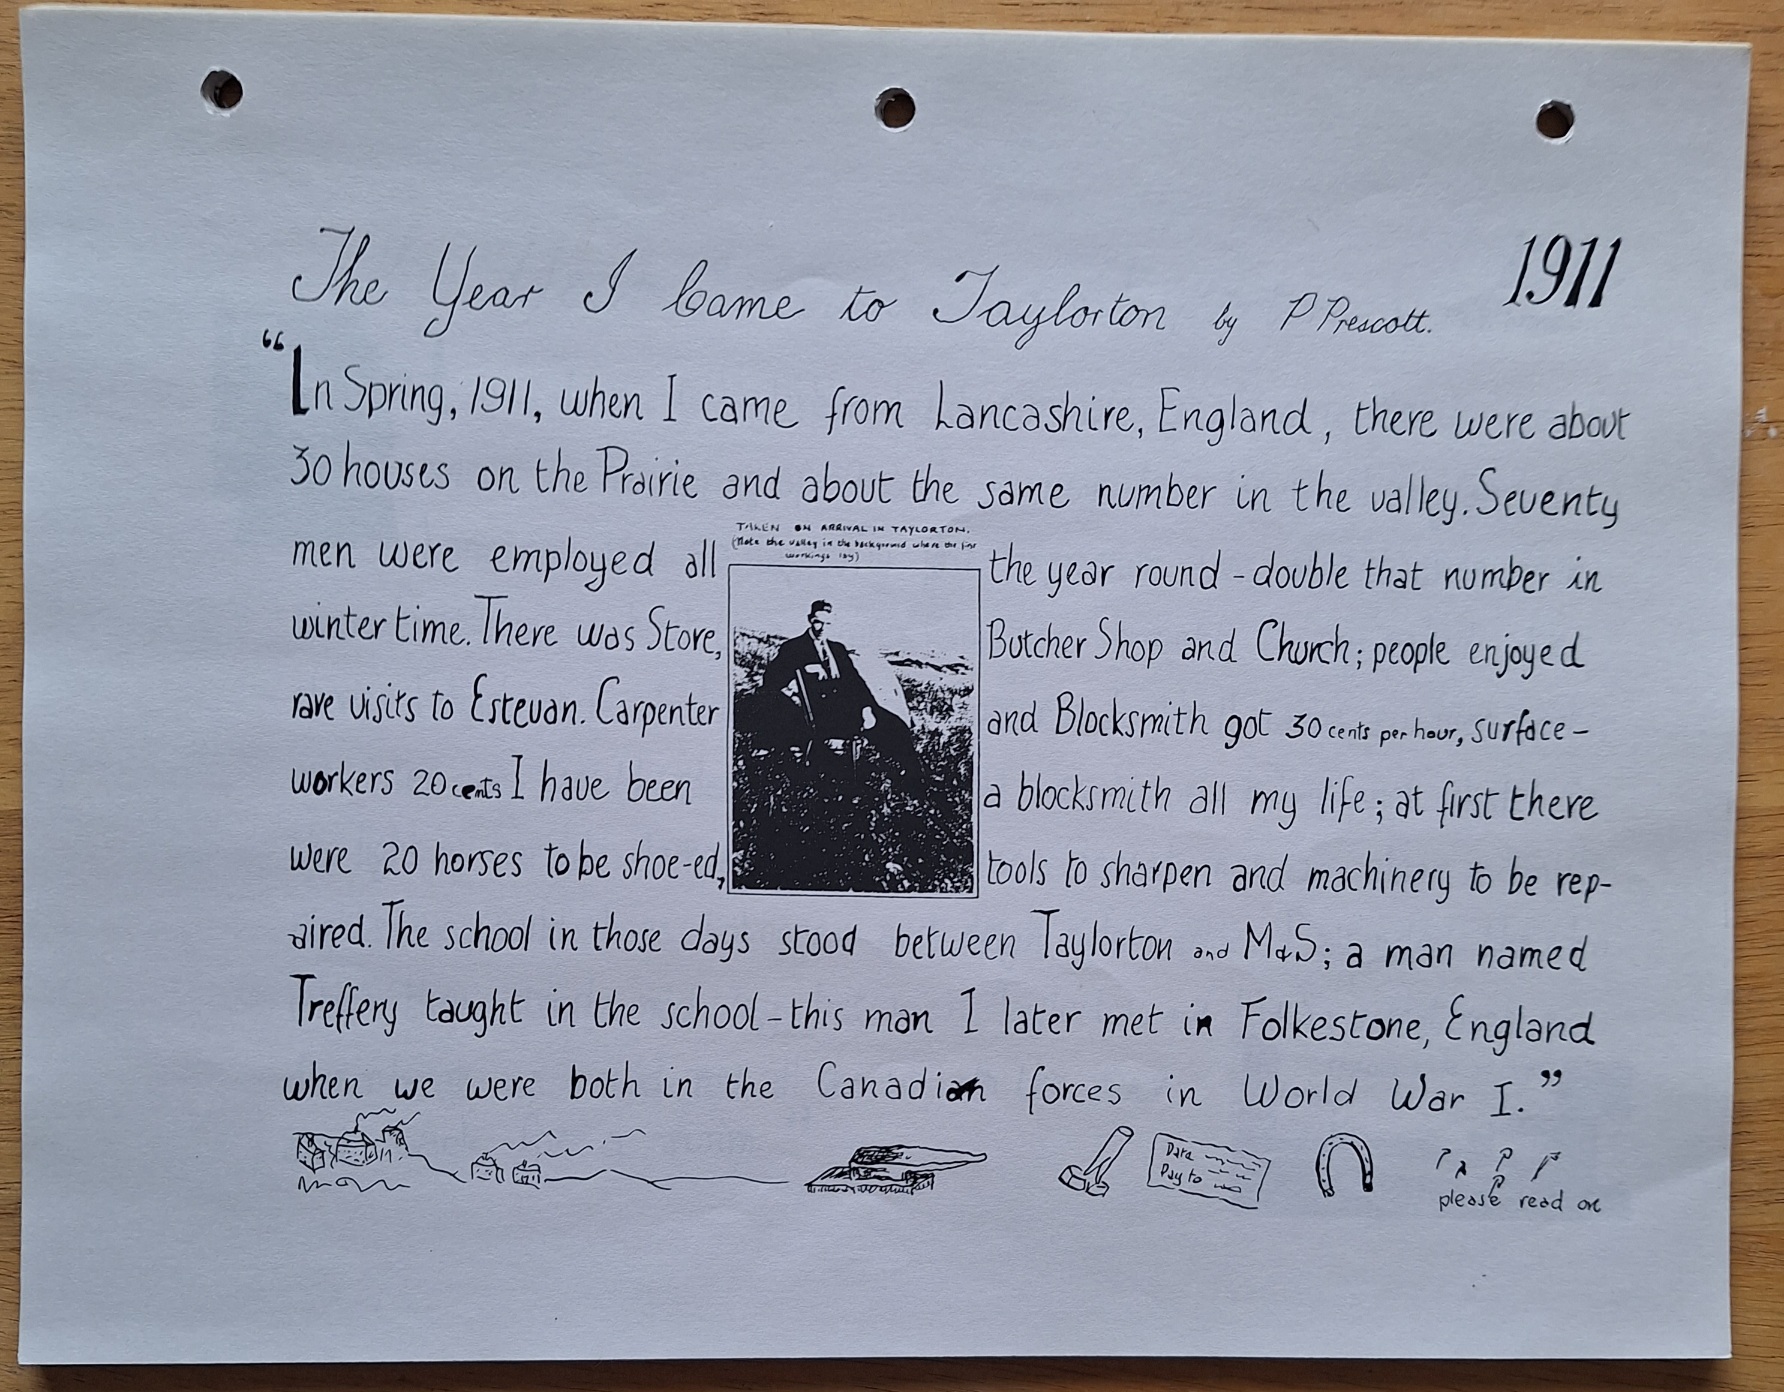 The Year I Came to Taylorton by P Prescott.
1911
“In Spring, 1911, when I came from Lancashire, England, there were about
30 houses on the Prairie and about the same number in the valley. Seventy
TAKEN ON ARRIVAL IN TAYLORTON.
(Note the valley in the background where the first
workings lay)
men were employed all the year round - double that number in
winter time. There was Store, Butcher Shop and Church; people enjoyed
rare visits to Estevan. Carpenter and Blacksmith got 30 cents per hour, surface-
workers 20 cents I have been a blacksmith all my life; at first there
were 20 horses to be shoe-ed, tools to sharpen and machinery to be rep-
aired. The school in those days stood between Taylorton and M&S; a man named
Treffery taught in the school - this man I later met in Folkestone, England
when we were both in the Canadian forces in World War I.”
Date
Pay to
please read on